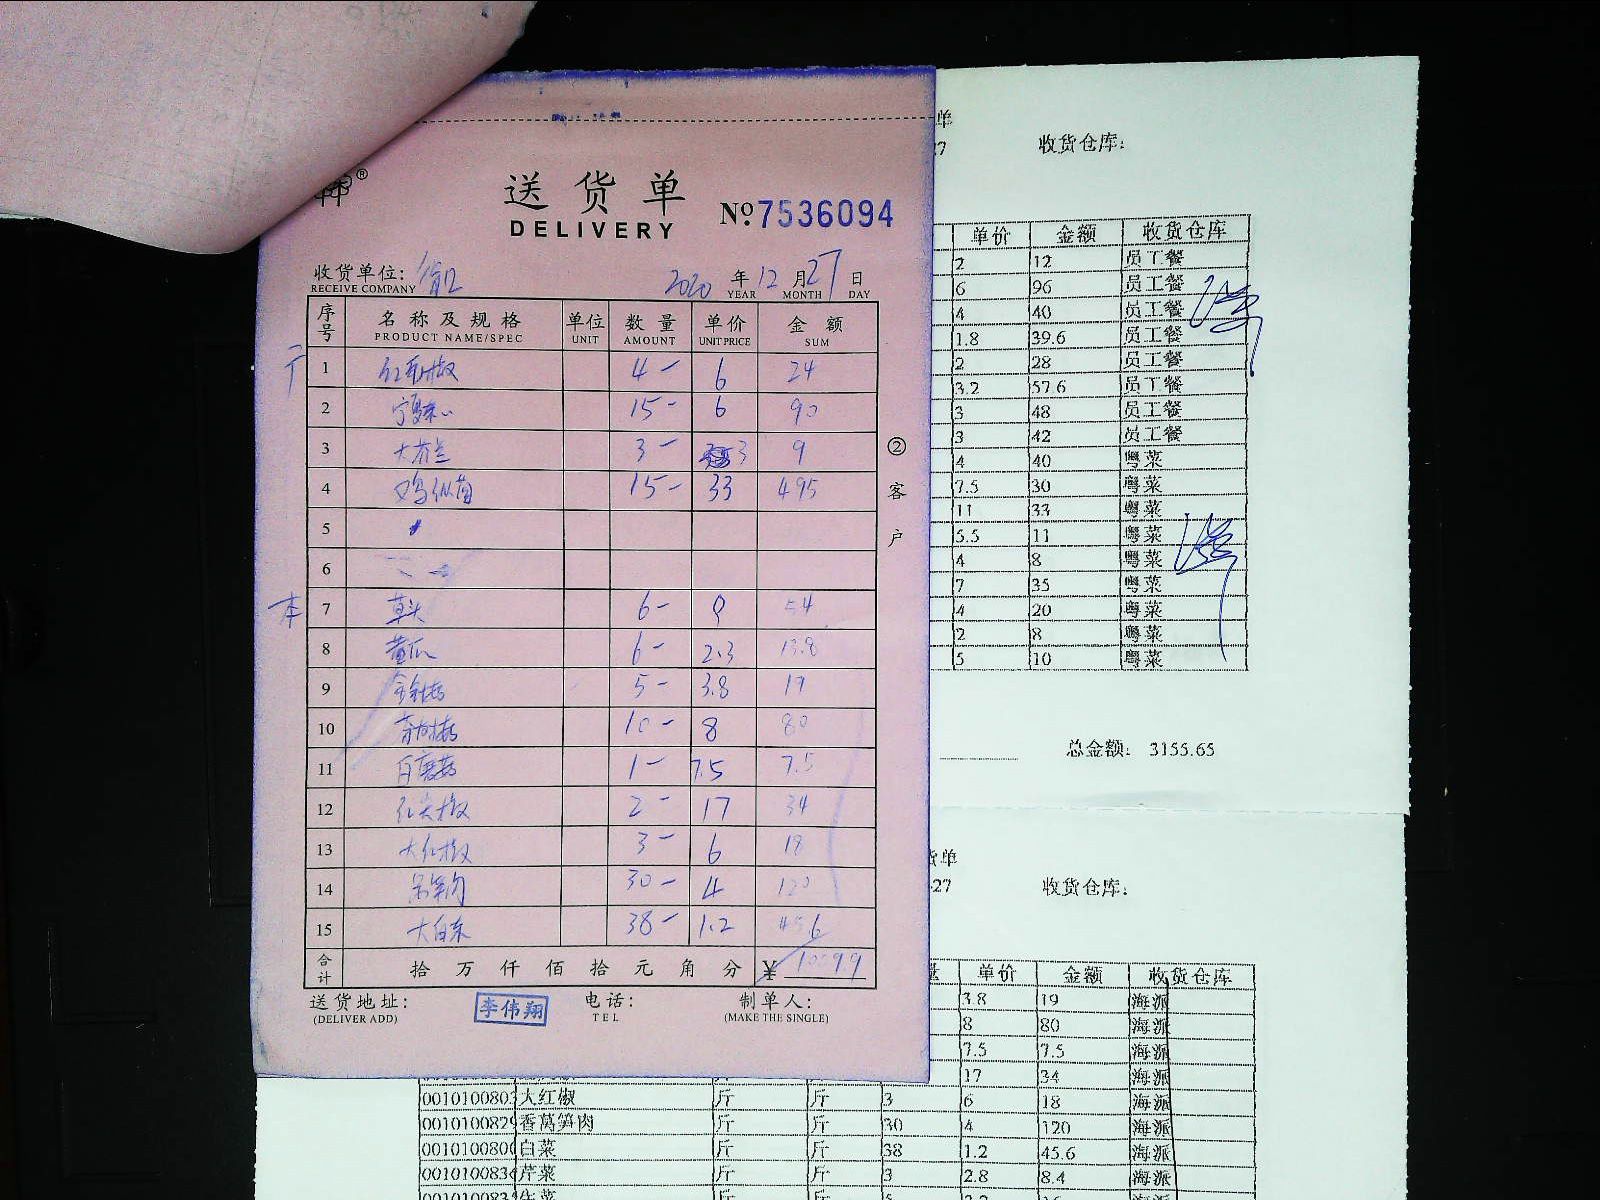 送货单
DELIVERY
№ 7536094
收货单位:
RECEIVE COMPANY
2020 年 12 月 27 日
YEAR MONTH DAY
序号 名称及规格 单位 数量 单价 金额
PRODUCT NAME/SPEC UNIT AMOUNT UNIT PRICE SUM
1 4- 6 24
2 15- 6 90
3 3- 3 9
4 鸡枞菌 15- 33 495
5
6
7 草头 6- 9 54
8 黄瓜 6- 2.3 13.8
9 金针菇 5- 3.8 19
10 10- 8 80
11 白蘑菇 1- 7.5 7.5
12 红尖椒 2- 17 34
13 大红椒 3- 6 18
14 30- 4 120
15 38- 1.2 45.6
合计 拾 万 仟 佰 拾 元 角 分 ¥
送货地址:
(DELIVER ADD)
李伟翔
电话:
TEL
制单人:
(MAKE THE SINGLE)
②客户
单
27
收货仓库:
单价 金额 收货仓库
2 12 员工餐
6 96 员工餐
4 40 员工餐
1.8 39.6 员工餐
2 28 员工餐
3.2 57.6 员工餐
3 48 员工餐
3 42 员工餐
4 40 粤菜
7.5 30 粤菜
11 33 粤菜
5.5 11 粤菜
4 8 粤菜
7 35 粤菜
4 20 粤菜
2 8 粤菜
5 10 粤菜
总金额: 3155.65
货单
-27
收货仓库:
量 单价 金额 收货仓库
3.8 19 海派
8 80 海派
7.5 7.5 海派
17 34 海派
001010080 大红椒 斤 斤 3 6 18 海派
001010082 香莴笋肉 斤 斤 30 4 120 海派
001010080 白菜 斤 斤 38 1.2 45.6 海派
001010083 芹菜 斤 斤 3 2.8 8.4 海派